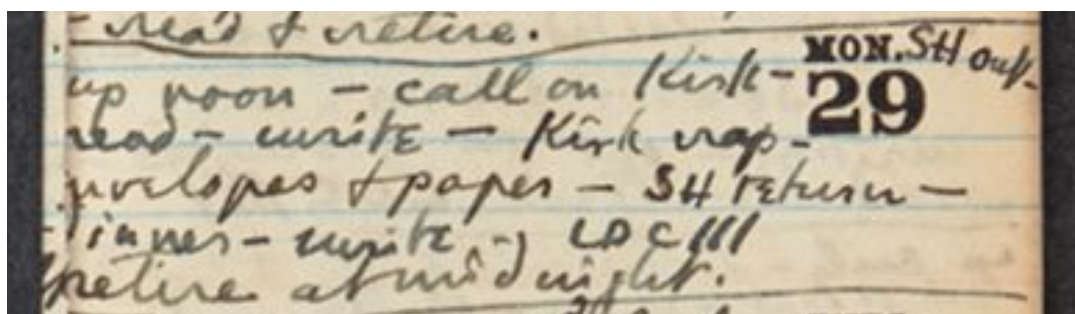 - read & retire.
MON. SH out.
29
up noon - call on Kirk -
read - write - Kirk nap -
envelopes & paper - SH return -
dinner - write -
retire at midnight.